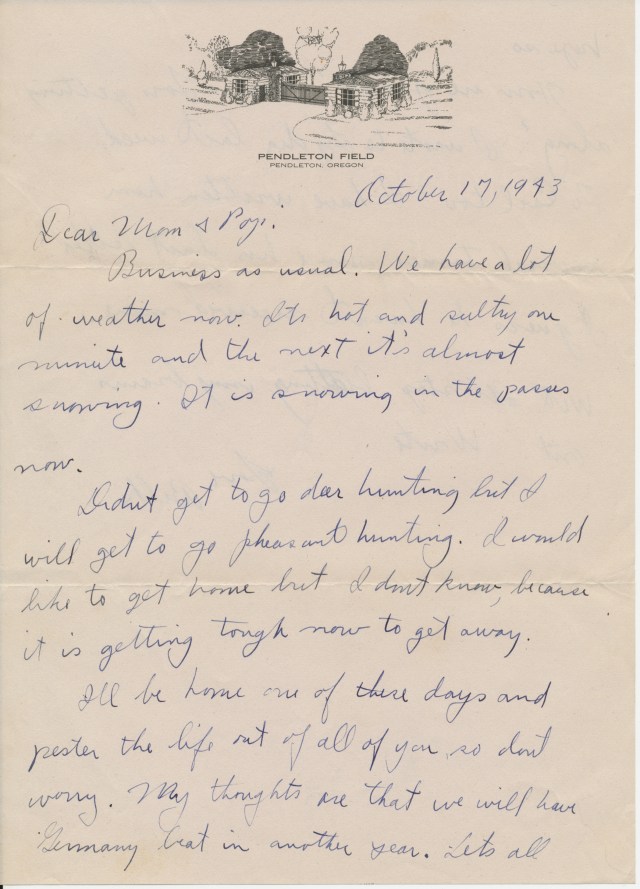 PENDLETON FIELD
PENDLETON, OREGON
October 17, 1943
Dear Mom & Pop:
Business as usual. We have a lot
of weather now. Its hot and sultry one
minute and the next it's almost
snowing. It is snowing in the passes
now.
Didnt get to go deer hunting but I
will get to go pheasant hunting. I would
like to get home but I dont know, because
it is getting tough now to get away.
I'll be home one of these days and
pester the life out of all of you, so dont
worry. My thoughts are that we will have
Germany beat in another year. Lets all